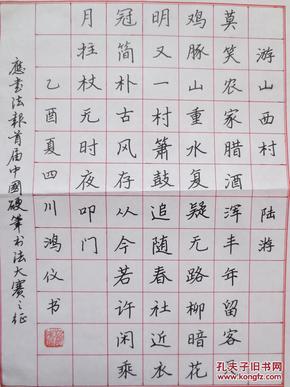 游山西村 陆游
莫笑农家腊酒浑丰年留客
鸡豚山重水复疑无路柳暗花
明又一村箫鼓追随春社近衣
冠简朴古风存从今若许闲乘
月拄杖无时夜叩门
乙酉夏四川鸿仪书
應书法报首届中國硬筆书法大赛之征
孔夫子旧书网